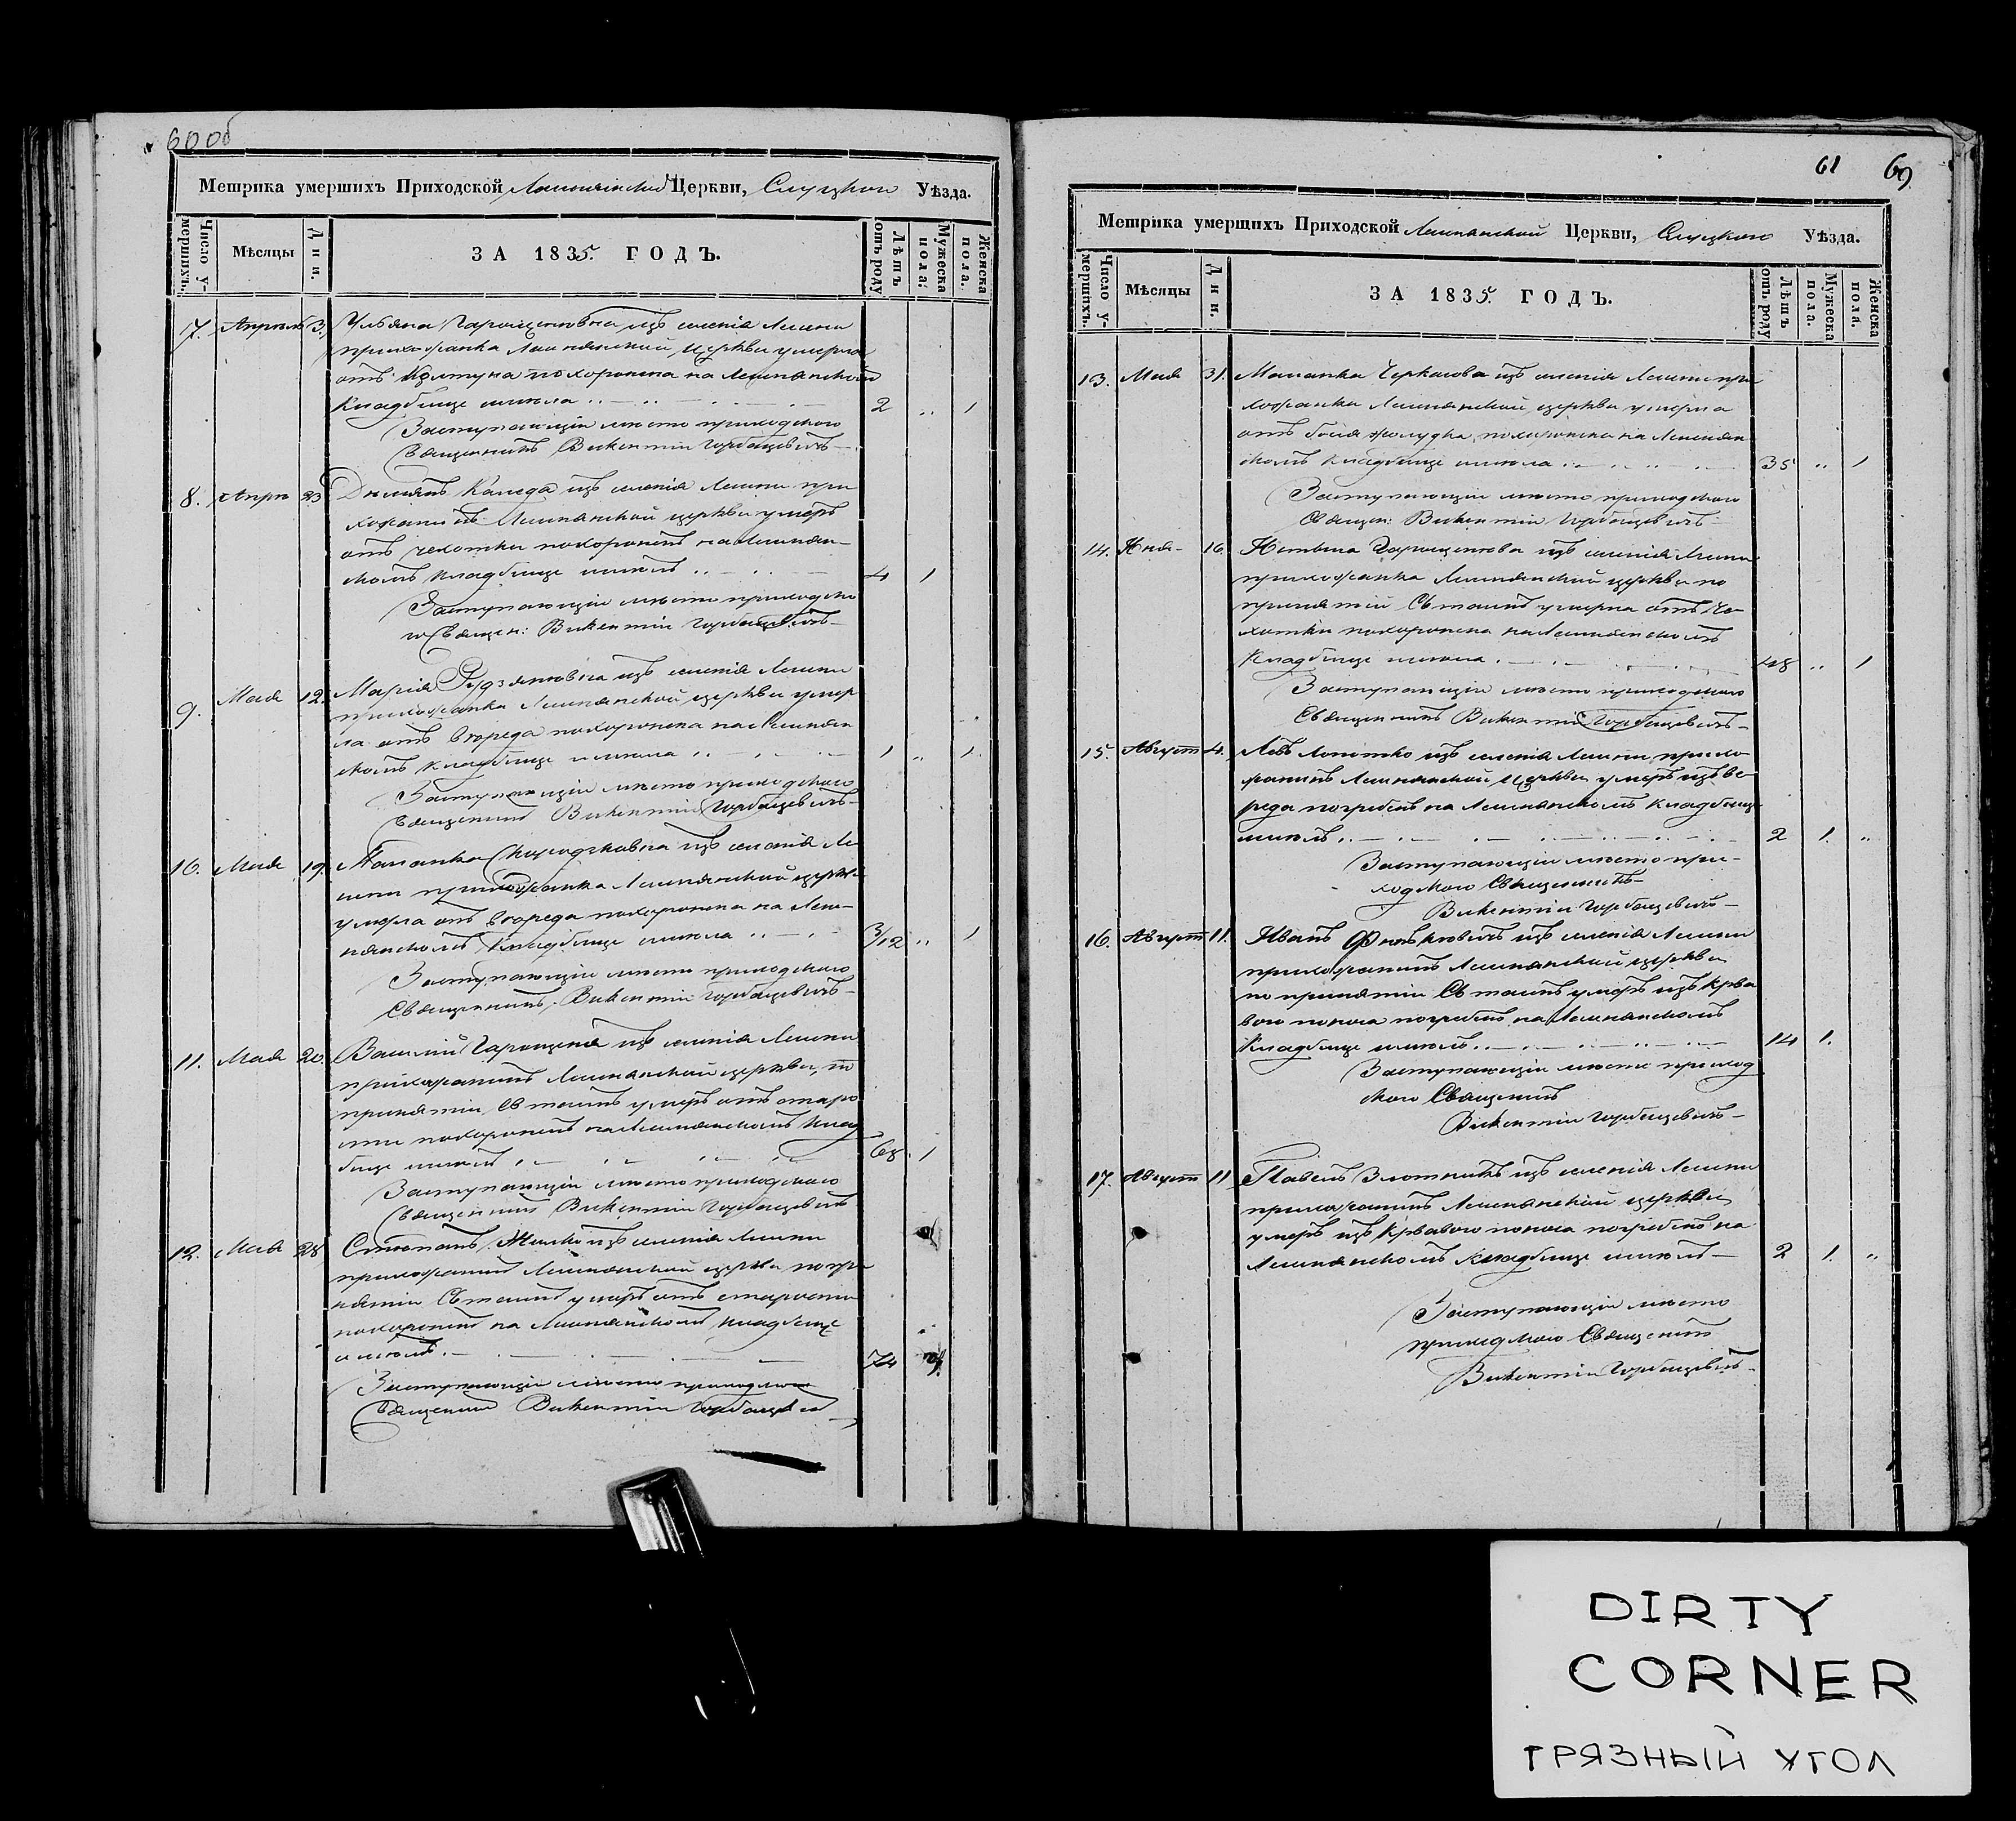 60 об
Метрика умершихъ Приходской Лешнянской Церкви, Слуцкого Уѣзда.
Число умершихъ.
Мѣсяцы
Дни.
ЗА 1835. ГОДЪ.
Лѣтъ отъ роду
Мужеска пола.
Женска пола.
7. Апрель 3. Ульяна из селенія Лешни
прихожанка Лешнянской Церкви умерла
отъ Колтуна похоронена на Лешнянском
Кладбище 2 „ 1
Заступающій место приходского
Священникъ Викентій Горбацевичъ
8. Апрл 23 Демянъ Каледа изъ селенія Лешни при
хожанинъ Лешнянской церкви умеръ
отъ чехотки похороненъ на Лешнян
скомъ кладбище 4 1
Заступающій место приходско
го Священ: Викентій Горбацевичъ
9. Мая 12. Марія изъ селенія Лешни
прихожанка Лешнянской церкви умер
ла отъ вереда похоронена на Лешнян
скомъ кладбище 1 „ 1
Заступающій место приходского
Священникъ Викентій Горбацевичъ
10. Мая 19. изъ селенія Ле
шни прихожанка Лешнянской церкви
умерла отъ вереда похоронена на Леш
нянскомъ Кладбище 3/12 „ 1
Заступающій место приходского
Священникъ Викентій Горбацевичъ
11. Мая 20. Василій изъ селенія Лешни
прихожанинъ Лешнянской церкви, по
принятіи Св таинъ умеръ отъ старо
сти похороненъ на Лешнянскомъ клад
бище 68 1
Заступающій место приходского
Священникъ Викентій Горбацевичъ
12. Мая 28 Степанъ изъ селенія Лешни
прихожанинъ Лешнянской церкви по при
нятіи Св таинъ умеръ отъ старости
похороненъ на Лешнянскомъ кладбище
74
Заступающій место приходского
Священникъ Викентій Горбацевичъ
61 69
Метрика умершихъ Приходской Лешнянской Церкви, Слуцкого Уѣзда.
Число умершихъ.
Мѣсяцы
Дни.
ЗА 1835. ГОДЪ.
Лѣтъ отъ роду
Мужеска пола.
Женска пола.
13. Мая 31. Маланка Черкасова изъ селенія Лешни при
хожанка Лешнянской церкви умерла
отъ боля жолудка, похоронена на Лешнян
скомъ кладбище 35 „ 1
Заступающій место приходского
Священ: Викентій Горбацевичъ
14. 16. изъ селенія Лешни
прихожанка Лешнянской церкви по
принятіи Св таинъ умерла отъ че
хотки похоронена на Лешнянскомъ
Кладбище 48 „ 1
Заступающій место приходского
Священникъ Викентій Горбацевичъ
15. Август 4. Левъ изъ селенія Лешни, прихо
жанинъ Лешнянской Церкви умеръ изъ ве
реда погребенъ на Лешнянскомъ кладбище
2 1. „
Заступающій место при
ходского Священникъ
Викентій Горбацевичъ
16. Август 11. Иванъ изъ селенія Лешни
прихожанинъ Лешнянской церкви
по принятіи Св таинъ умеръ изъ крва
вого поноса погребенъ на Лешнянскомъ
Кладбище 14 1.
Заступающій место приход
ского Священникъ
Викентій Горбацевичъ
17. Август 11 Павелъ Злотникъ изъ селенія Лешни
прихожанинъ Лешнянской церкви
умеръ изъ крвавого поноса погребенъ на
Лешнянскомъ Кладбище 2 1. „
Заступающій место
приходского Священникъ
Викентій Горбацевичъ
DIRTY
CORNER
ГРЯЗНЫЙ УГОЛ